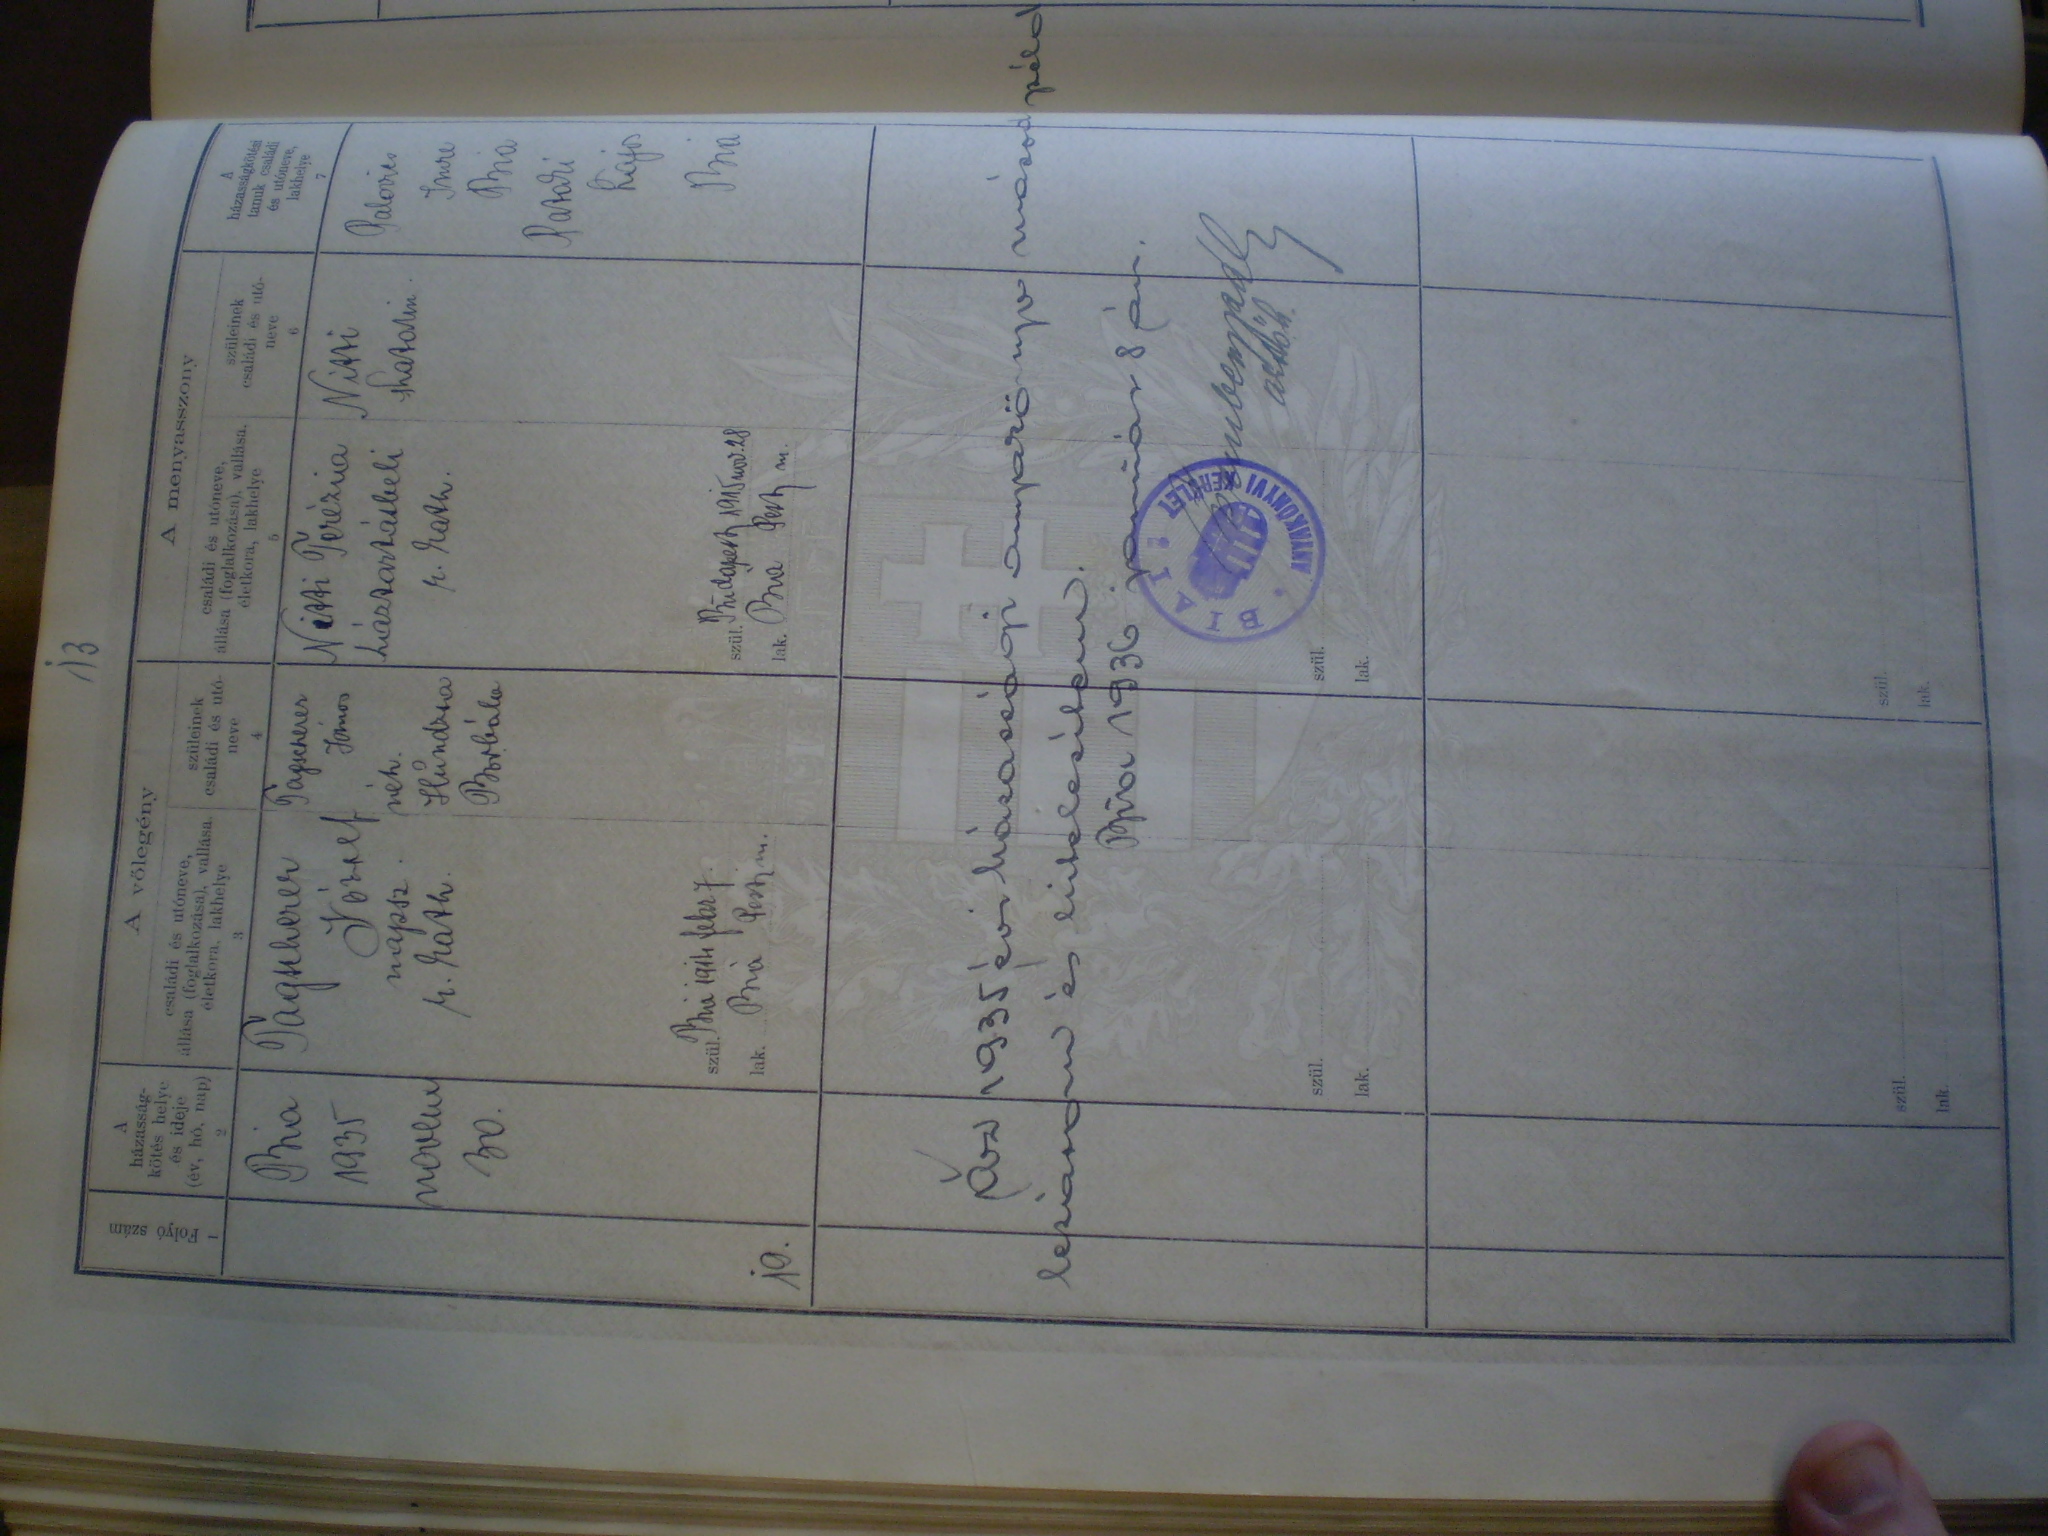 13
A vőlegény
A menyasszony
Folyó szám
1
A
házasság-
kötés helye
és ideje
(év, hó, nap)
2
családi és utóneve,
állása (foglalkozása), vallása,
életkora, lakhelye
3
szüleinek
családi és utó-
neve
4
családi és utóneve,
állása (foglalkozása), vallása,
életkora, lakhelye
5
szüleinek
családi és utó-
neve
6
A
házasságkötési
tanuk családi
és utóneve,
lakhelye
7
19.
Bia
1935
novem
30.
Tagscherer
József
napsz.
r. kath.
szül. Bia 1914 febr 7.
lak. Bia Pest m.
Tagscherer
János
néh.
Hundsna
Borbála
Nitti Terézia
háztartásbeli
r. kath.
szül. Budapest 1915 nov. 28
lak. Bia Pest m.
Nitti
Katalin.
Palovics
Imre
Bia
Lajos
Bia
Az 1935 évi házassági anyakönyv másod péld
lezárom és hitelesítem.
Bia 1936. január 8 án.
BIAI
ANYAKÖNYVI KERÜLET
szül.
lak.
szül.
lak.
szül.
lak.
szül.
lak.